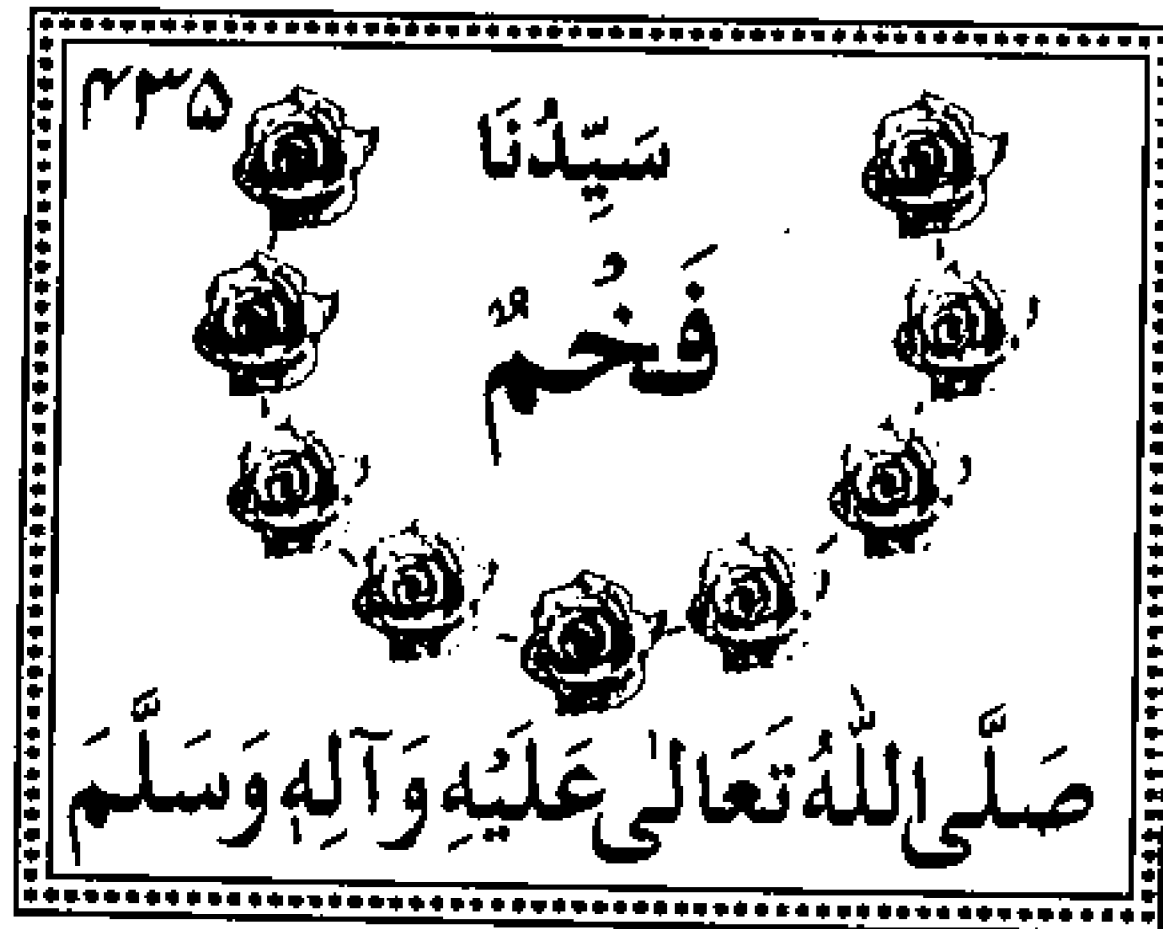 ۴۳۵
سَيِّدُنَا
فَخُمٌ
صَلَّى اللّٰهُ تَعَالٰى عَلَيْهِ وَآلِهٖ وَسَلَّمَ